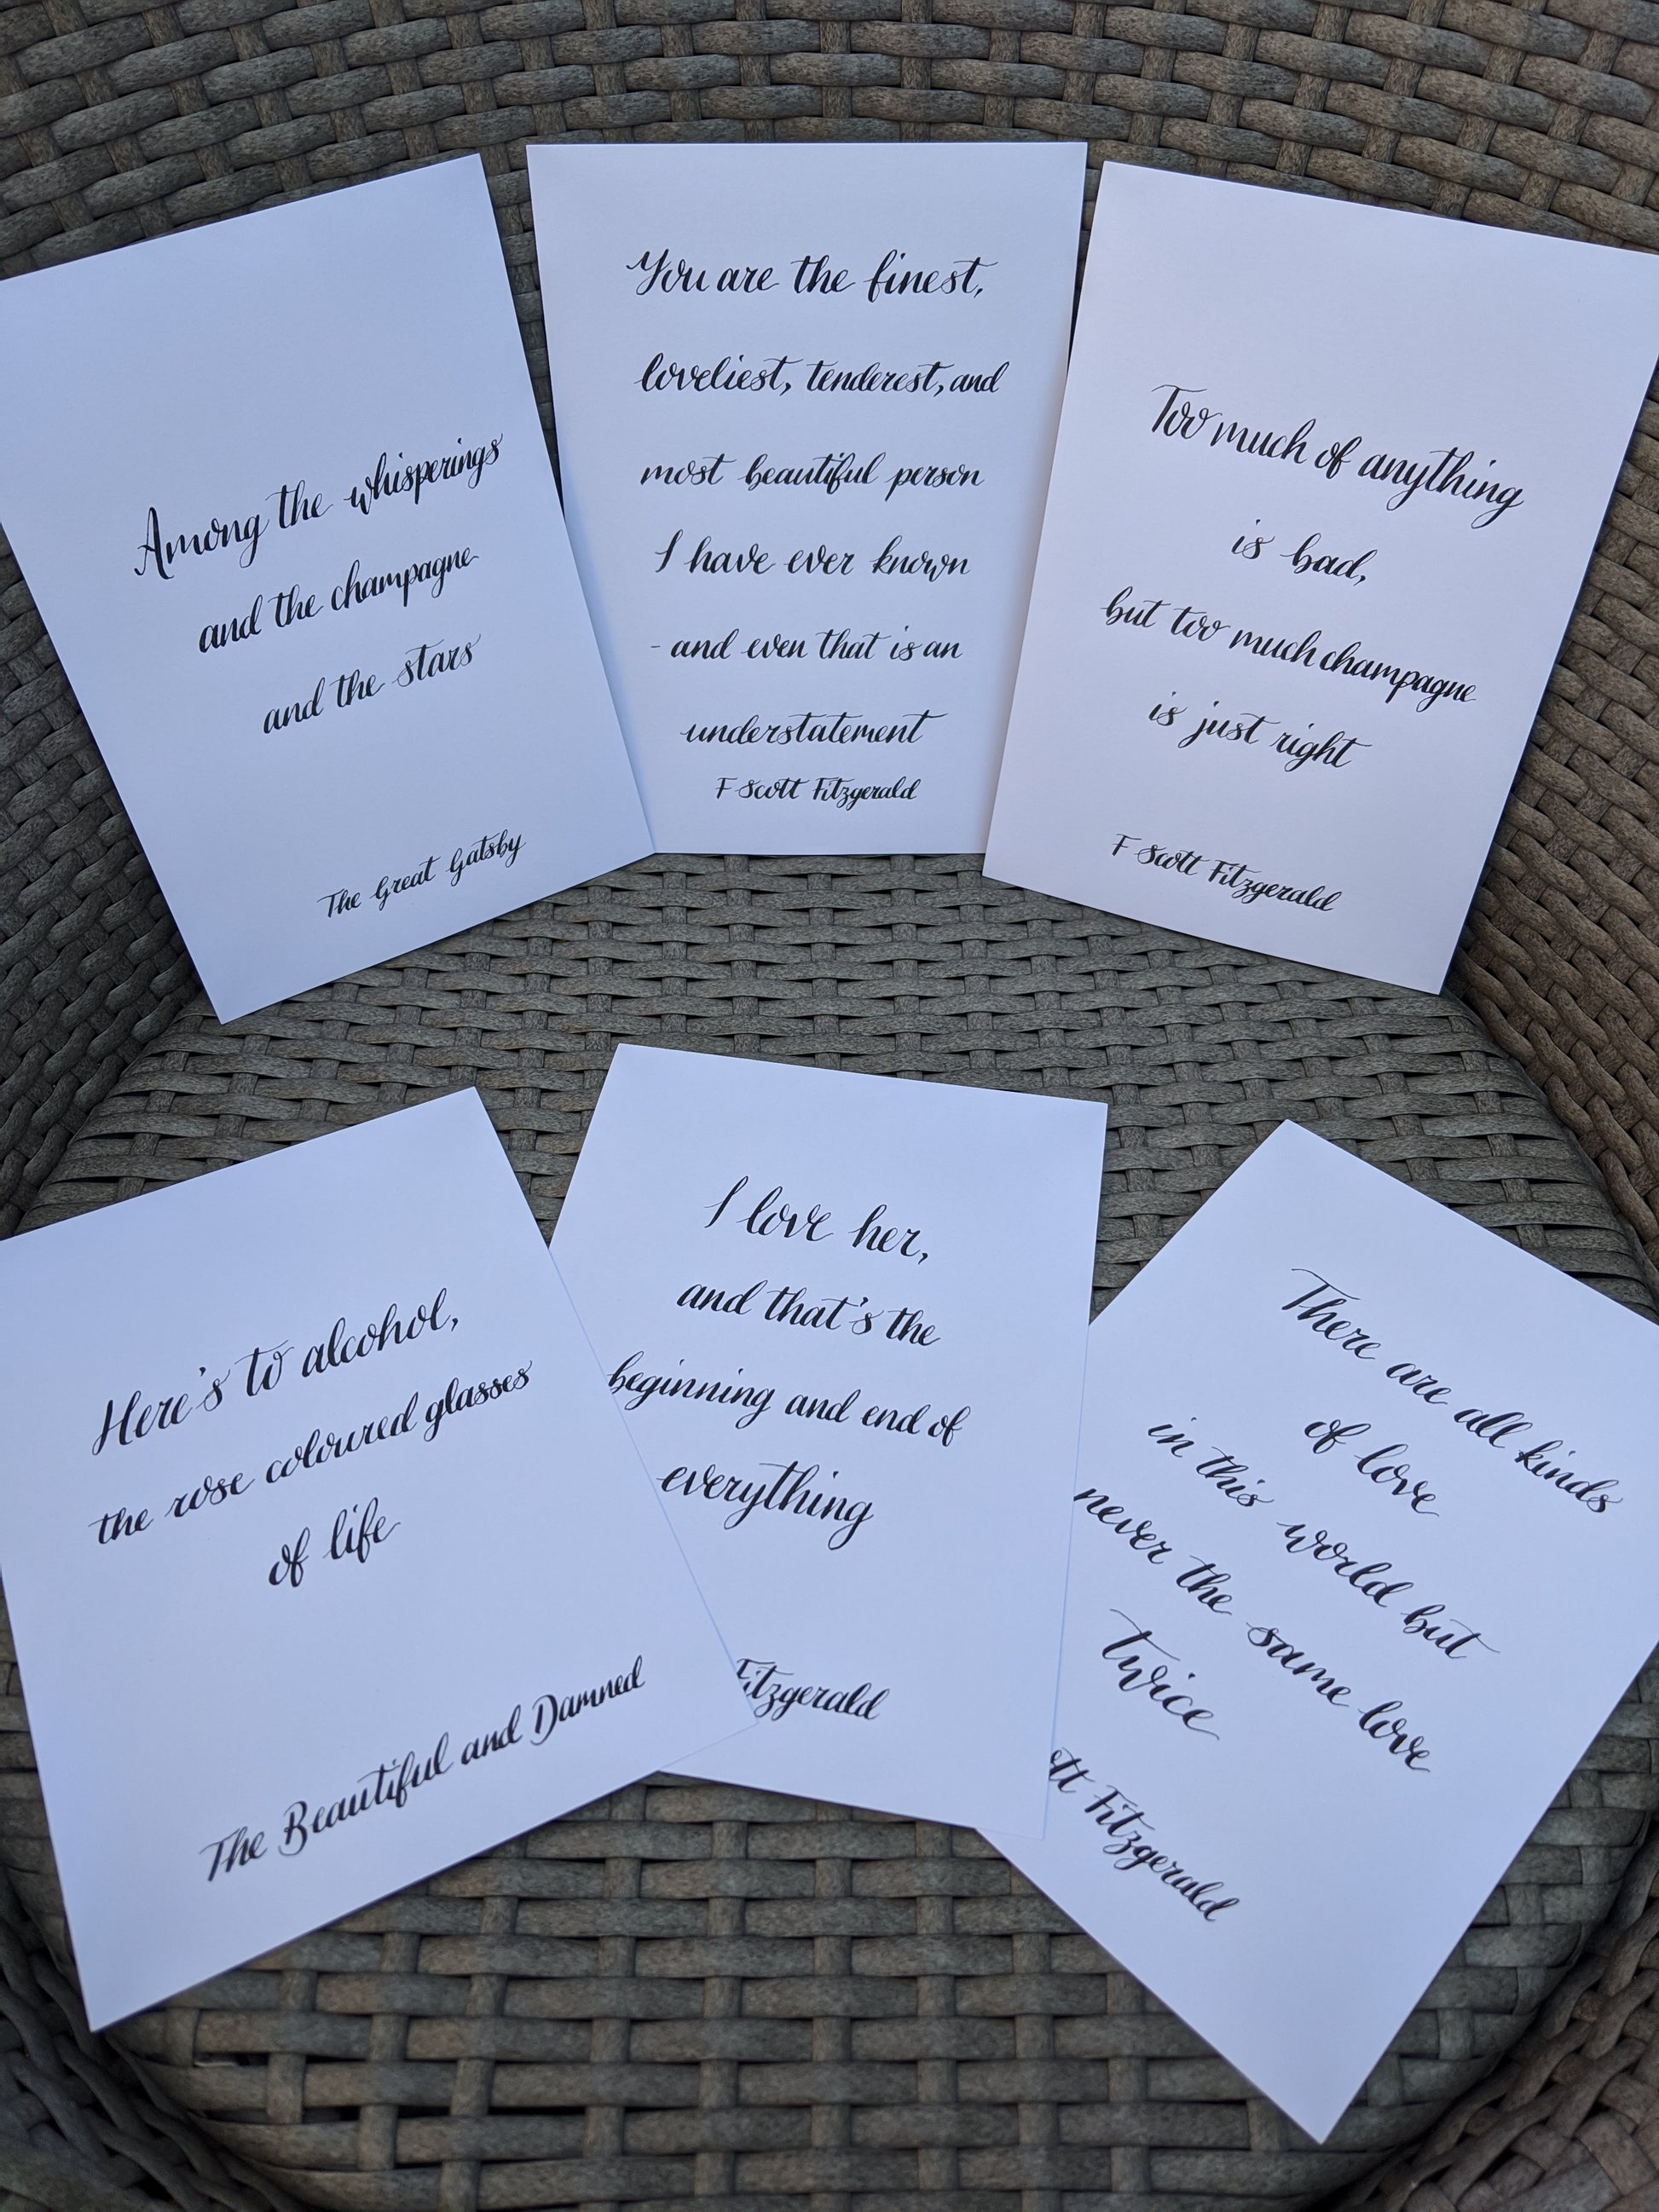 Among the whisperings
and the champagne
and the stars
The Great Gatsby
You are the finest,
loveliest, tenderest, and
most beautiful person
I have ever known
- and even that is an
understatement
F Scott Fitzgerald
Too much of anything
is bad,
but too much champagne
is just right
F Scott Fitzgerald
Here's to alcohol,
the rose coloured glasses
of life
The Beautiful and Damned
I love her,
and that's the
beginning and end of
everything
Fitzgerald
There are all kinds
of love
in this world but
never the same love
twice
ott Fitzgerald